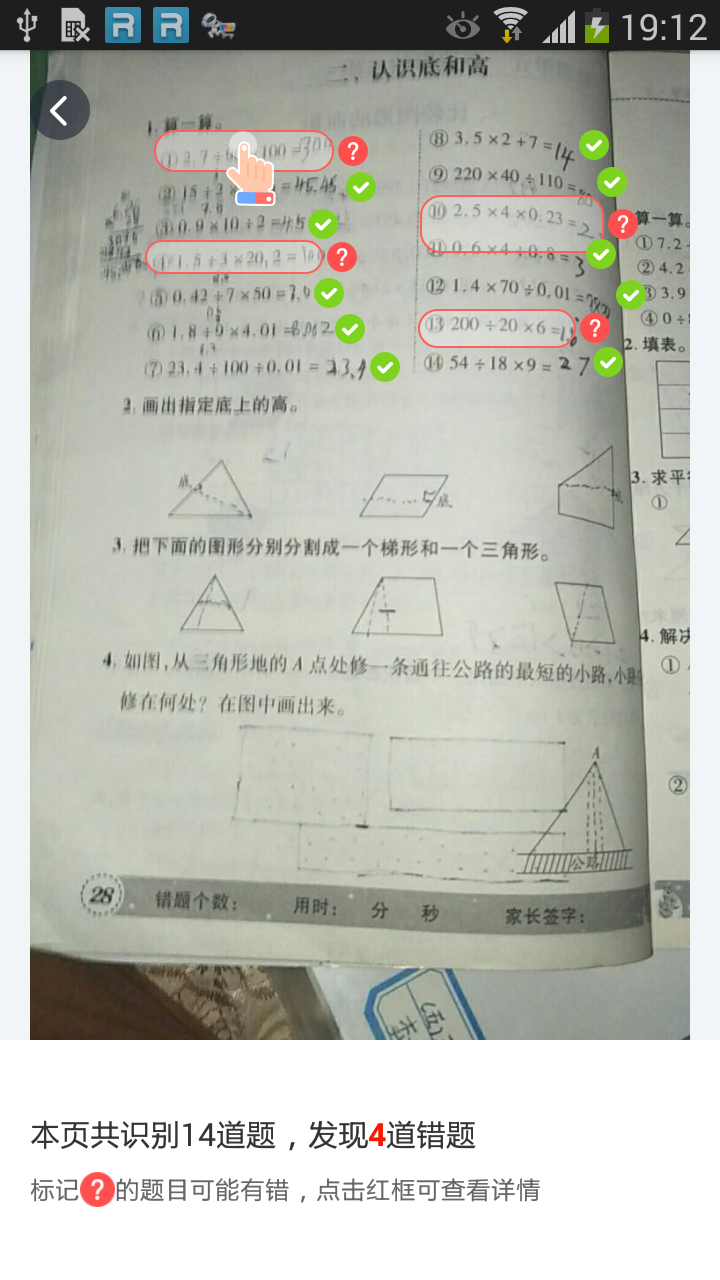 19:12
二、认识底和高
1. 算一算。
100=300
② 15÷3× =45.45
③ 0.9×10÷2=45
④ 1.5÷3×20.2=10
⑤ 0.42÷7×50=3.0
⑥ 1.8÷9×4.01=8.02
⑦ 23.4÷100÷0.01=23.4
⑧ 3.5×2+7=14
⑨ 220×40÷110=80
⑩ 2.5×4×0.23=2.
⑪ 0.6×4÷0.8=3
⑫ 1.4×70÷0.01=
⑬ 200÷20×6=
⑭ 54÷18×9=27
2. 画出指定底上的高。
底
底
3. 把下面的图形分别分割成一个梯形和一个三角形。
4. 如图,从三角形地的A点处修一条通往公路的最短的小路,小路
修在何处?在图中画出来。
A
公路
28
错题个数:
用时: 分 秒
家长签字:
算一算。
① 7.2
② 4.2
③ 3.9
④ 0÷
2. 填表。
3. 求平
①
4. 解决
①
②
本页共识别14道题，发现4道错题
标记?的题目可能有错，点击红框可查看详情